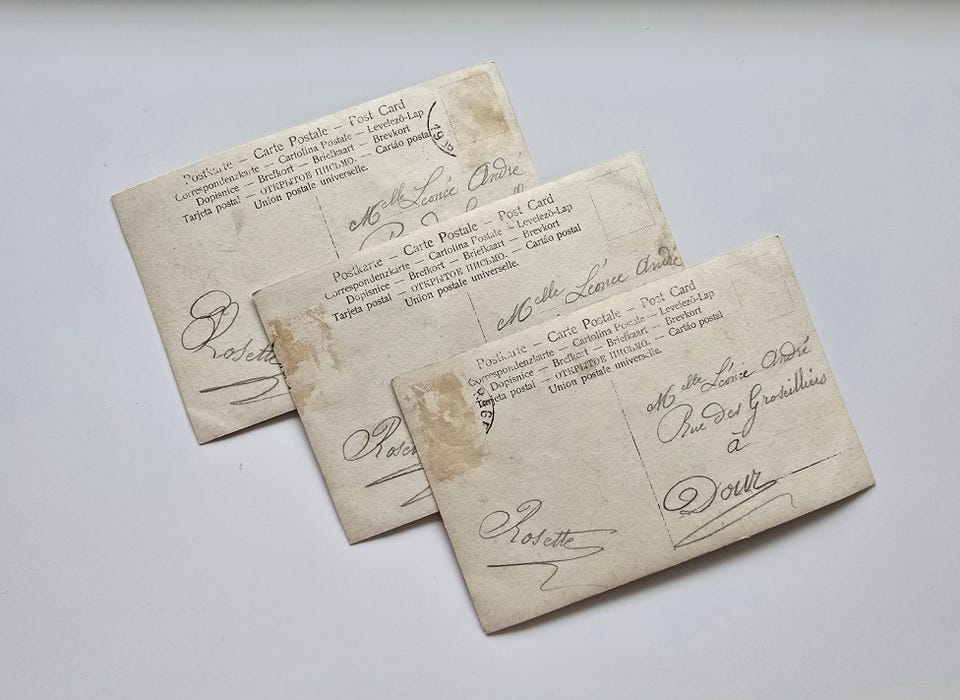 Postkarte — Carte Postale — Post Card
Correspondenzkarte — Cartolina Postale — Levelező-Lap
Dopisnice — Brefkort — Briefkaart — Brevkort
Tarjeta postal — ОТКРЫТОЕ ПИСЬМО. — Cartão postal
Union postale universelle.
19
Mlle Léonie André
Rosette
Postkarte — Carte Postale — Post Card
Correspondenzkarte — Cartolina Postale — Levelező-Lap
Dopisnice — Brefkort — Briefkaart — Brevkort
Tarjeta postal — ОТКРЫТОЕ ПИСЬМО. — Cartão postal
Union postale universelle.
Melle Léonie André
Postkarte — Carte Postale — Post Card
Correspondenzkarte — Cartolina Postale — Levelező-Lap
Dopisnice — Brefkort — Briefkaart — Brevkort
Tarjeta postal — ОТКРЫТОЕ ПИСЬМО. — Cartão postal
Union postale universelle.
Melle Léonie André
Rue des Groseilliers
à
Dour
Rosette